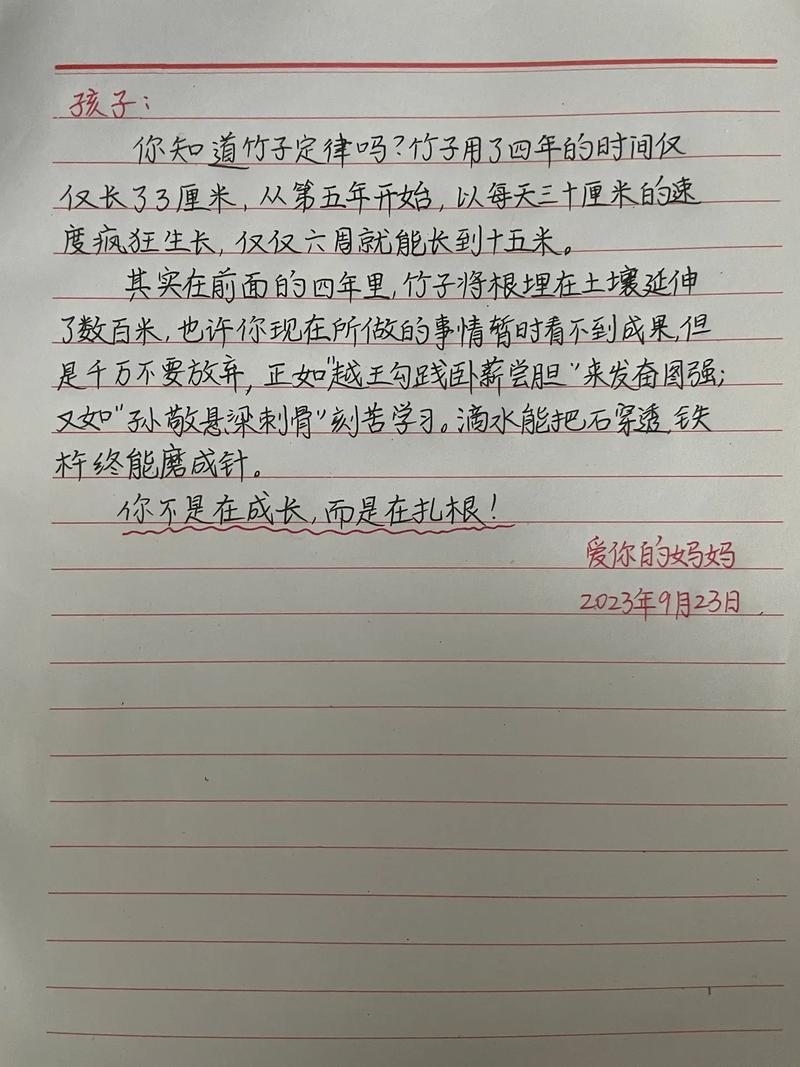 孩子：
你知道竹子定律吗？竹子用了四年的时间仅
仅长了3厘米，从第五年开始，以每天三十厘米的速
度疯狂生长，仅仅六周就能长到十五米。
其实在前面的四年里，竹子将根埋在土壤延伸
了数百米，也许你现在所做的事情暂时看不到成果，但
是千万不要放弃，正如“越王勾践卧薪尝胆”来发奋图强；
又如“孙敬悬梁刺骨”刻苦学习。滴水能把石穿透，铁
杵终能磨成针。
你不是在成长，而是在扎根！
爱你的妈妈
2023年9月23日